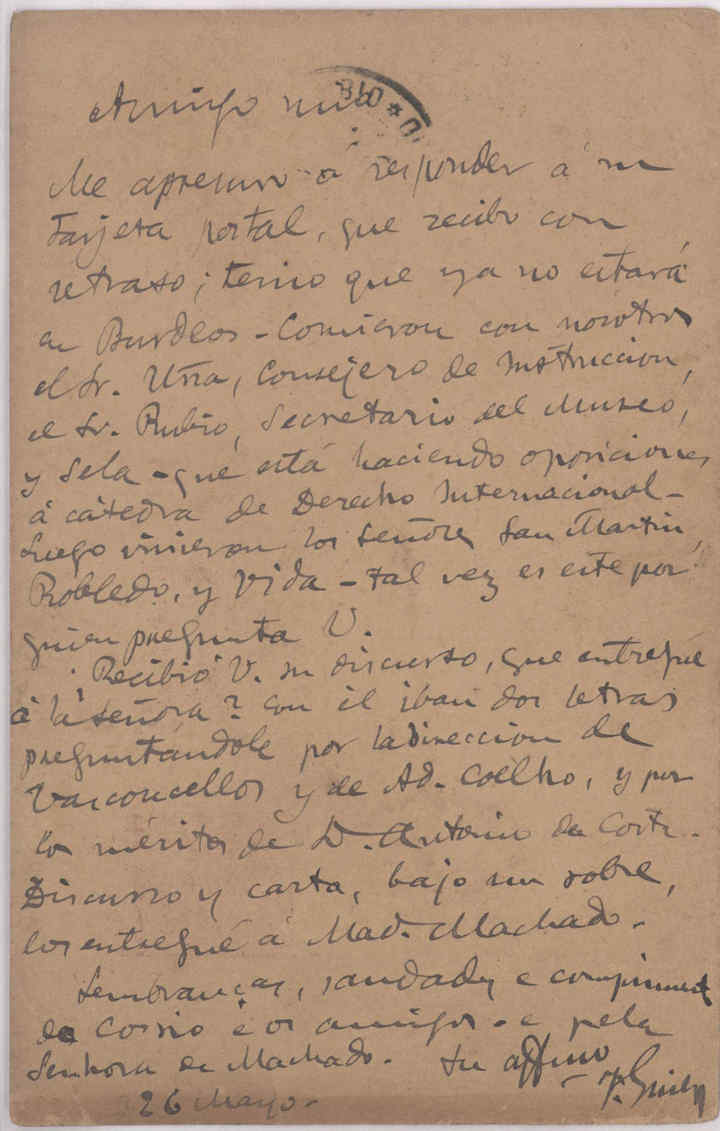 Amigo mio
Me apresuro á responder á su
tarjeta postal, que recibo con
retraso; temo que ya no estará
en Burdeos - Comieron con nosotros
el Sr. Uña, Consejero de Instruccion,
el Sr. Rubio, Secretario del Museo,
y Sela - que está haciendo oposiciones
á cátedra de Derecho Internacional -
Luego vinieron los señores San Martin,
Robledo, y Vida - tal vez es este por
quien pregunta V.
Recibió V. su discurso, que entregué
á la señora? Con él iban dos letras
preguntándole por la direccion de
Vasconcellos y de Ad. Coelho, y por
los méritos de D. Antonio da Costa.
Discurso y carta, bajo un sobre,
los entregué á Mad. Machado.
Lembranças, saudades e compriment
de Cossio e os amigos - e pela
Senhora de Machado. Su affmo
F. Giner
26 Mayo.